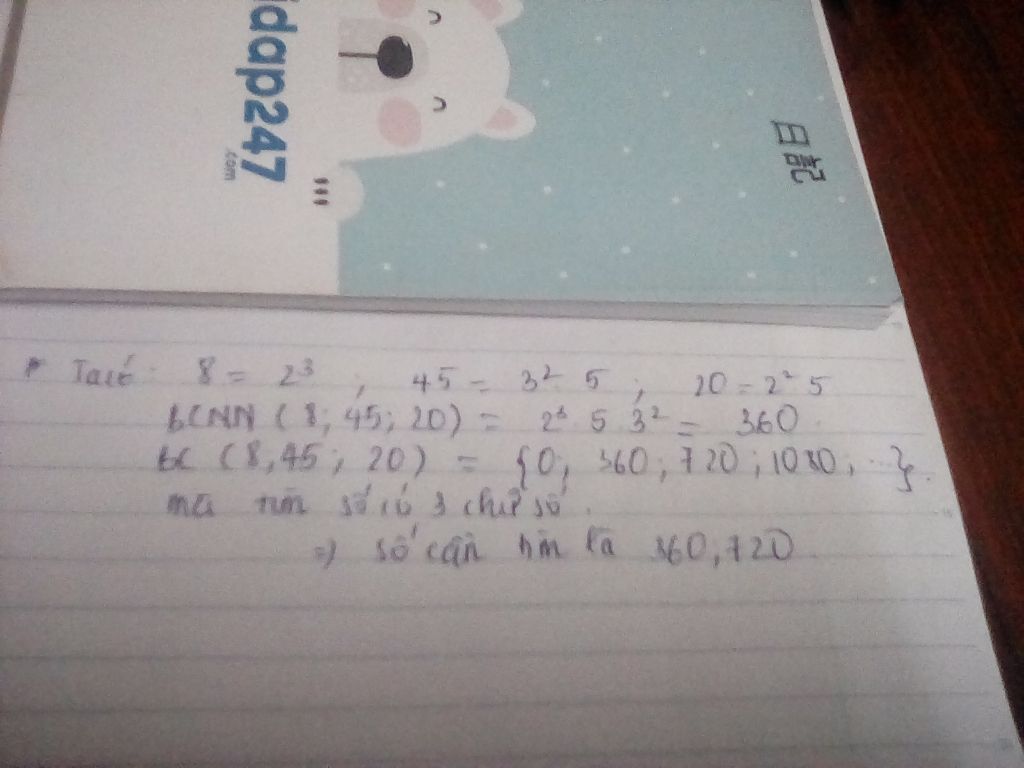 idap247
.com
日記
* Ta có: 8 = 2³ ; 45 = 3² 5 ; 20 = 2² 5
BCNN (8; 45; 20) = 2³ . 5 3² = 360.
BC (8, 45; 20) = {0; 360; 720; 1080; ...}.
mà tìm số có 3 chữ số.
=> số cần tìm là 360, 720